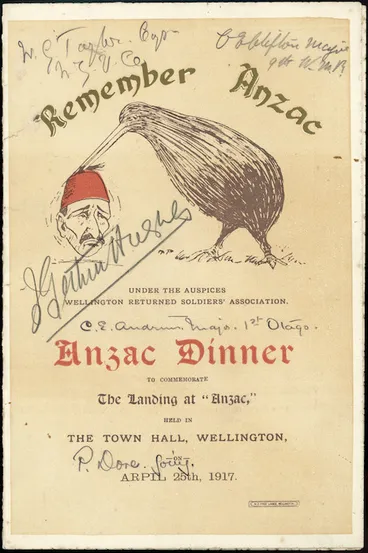 W. G. Taylor. Capt
N. Z. Co
C E Clifton Major
9th W. M. R.
Remember Anzac
J Gethin Hughes
UNDER THE AUSPICES
WELLINGTON RETURNED SOLDIERS' ASSOCIATION.
C. E. Andrews, Major. 1st Otago.
Anzac Dinner
TO COMMEMORATE
The Landing at "Anzac,"
HELD IN
THE TOWN HALL, WELLINGTON,
ON
P. Dore.
ARPIL 25th, 1917.